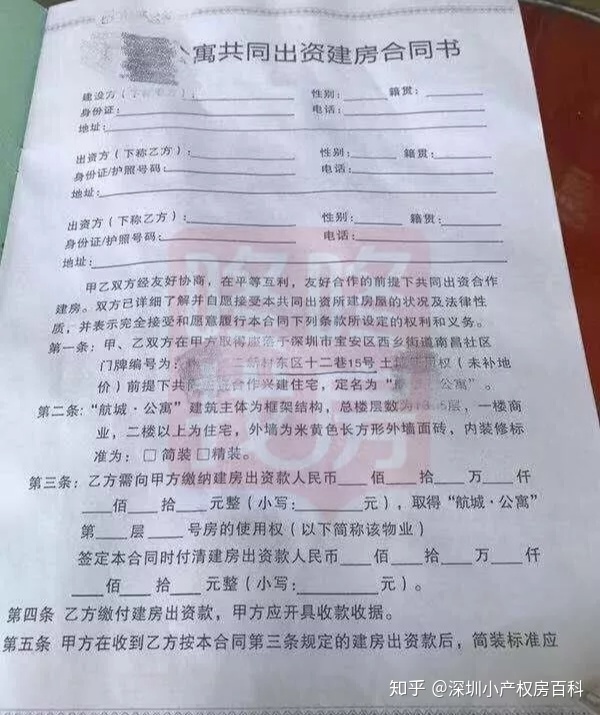 寓共同出资建房合同书
建设方(下称甲方):________ 性别:____ 籍贯:____
身份证:________ 电话:________
地址:________
出资方(下称乙方):________ 性别:____ 籍贯:____
身份证/护照号码:________ 电话:________
地址:________
出资方(下称乙方):________ 性别:____ 籍贯:____
身份证/护照号码:________ 电话:________
地址:________
甲乙双方经友好协商,在平等互利,友好合作的前提下共同出资合作
建房。双方已详细了解并自愿接受本共同出资所建房屋的状况及法律性
质,并表示完全接受和愿意履行本合同下列条款所设定的权利和义务。
第一条:甲、乙双方在甲方取得座落于深圳市宝安区西乡街道南昌社区
门牌编号为:新村东区十二巷15号土地使用权(未补地
价)前提下共同出资合作兴建住宅,定名为“航公寓”。
第二条:“航城·公寓”建筑主体为框架结构,总楼层数为层,一楼商
业,二楼以上为住宅,外墙为米黄色长方形外墙面砖,内装修标
准为:□简装□精装。
第三条:乙方需向甲方缴纳建房出资款人民币___佰___拾___万___仟
___佰___拾___元整(小写:________元),取得“航城·公寓”
第___层___号房的使用权(以下简称该物业)
签定本合同时付清建房出资款人民币___佰___拾___万___仟
___佰___拾___元整(小写:________元)。
第四条 乙方缴付建房出资款,甲方应开具收款收据。
第五条 甲方在收到乙方按本合同第三条规定的建房出资款后,简装标准应
知乎 @深圳小产权房百科